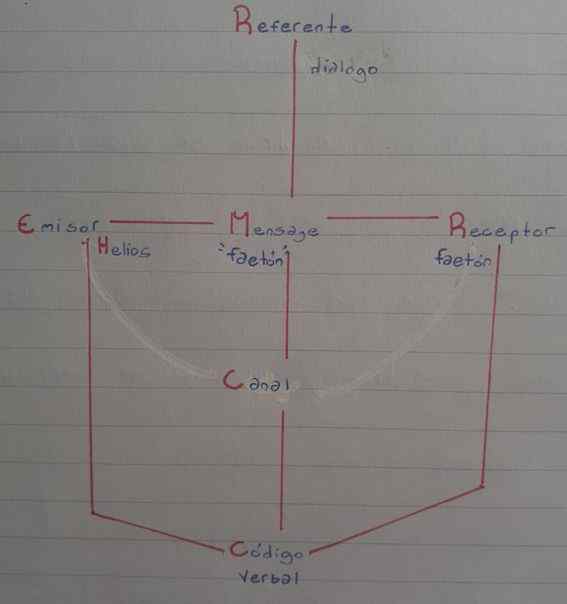 Referente
diálogo
Emisor Mensaje Receptor
Helios "faetón" faetón
Canal
Código
Verbal